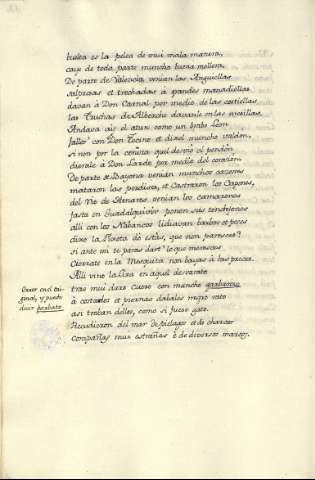 buelta es la pelea de mui mala manera,
caya de toda parte muncha buena mollera.
De parte de Valencia venian las Anguillas
salpresas et trechadas à grandes manadiellas
davan à Don Carnal por medio de las costiellas
las Truchas de Alberche davanle en las mexillas.
Andava ais el atun como un brabo Leon
fallos con Don Tocino et dixol muncho baldon,
si non por la cecina quel desvio el pendon
dierale à Don Lardo por medio del corazon.
De parte de Bayona venian munchos cazones
mataron las perdices, et Castraron los Capones,
del Rio de Henares venian los camarones
fasta en Guadalquivir ponen sus tendejones
Alli con los Nabancos lidiavan barbos et peces
dixo la Pixota dò estàs, que non paresces?
si ante mi te paras dart' he lo que mereces
Cierrate en la Mesquita non bayas à las preces.
Alli vino la Lixa en aquel desvarate
tras mui duro cuero con muncho garabanco
Error en el ori-
ginal, y puede
decir garabato
à costados et piernas dabales negro rato
asi trabava dellos, como si fuese gato.
Recudieron del mar de pielagos et de charcos
Compañas mui estrañas è de diversos marcos,